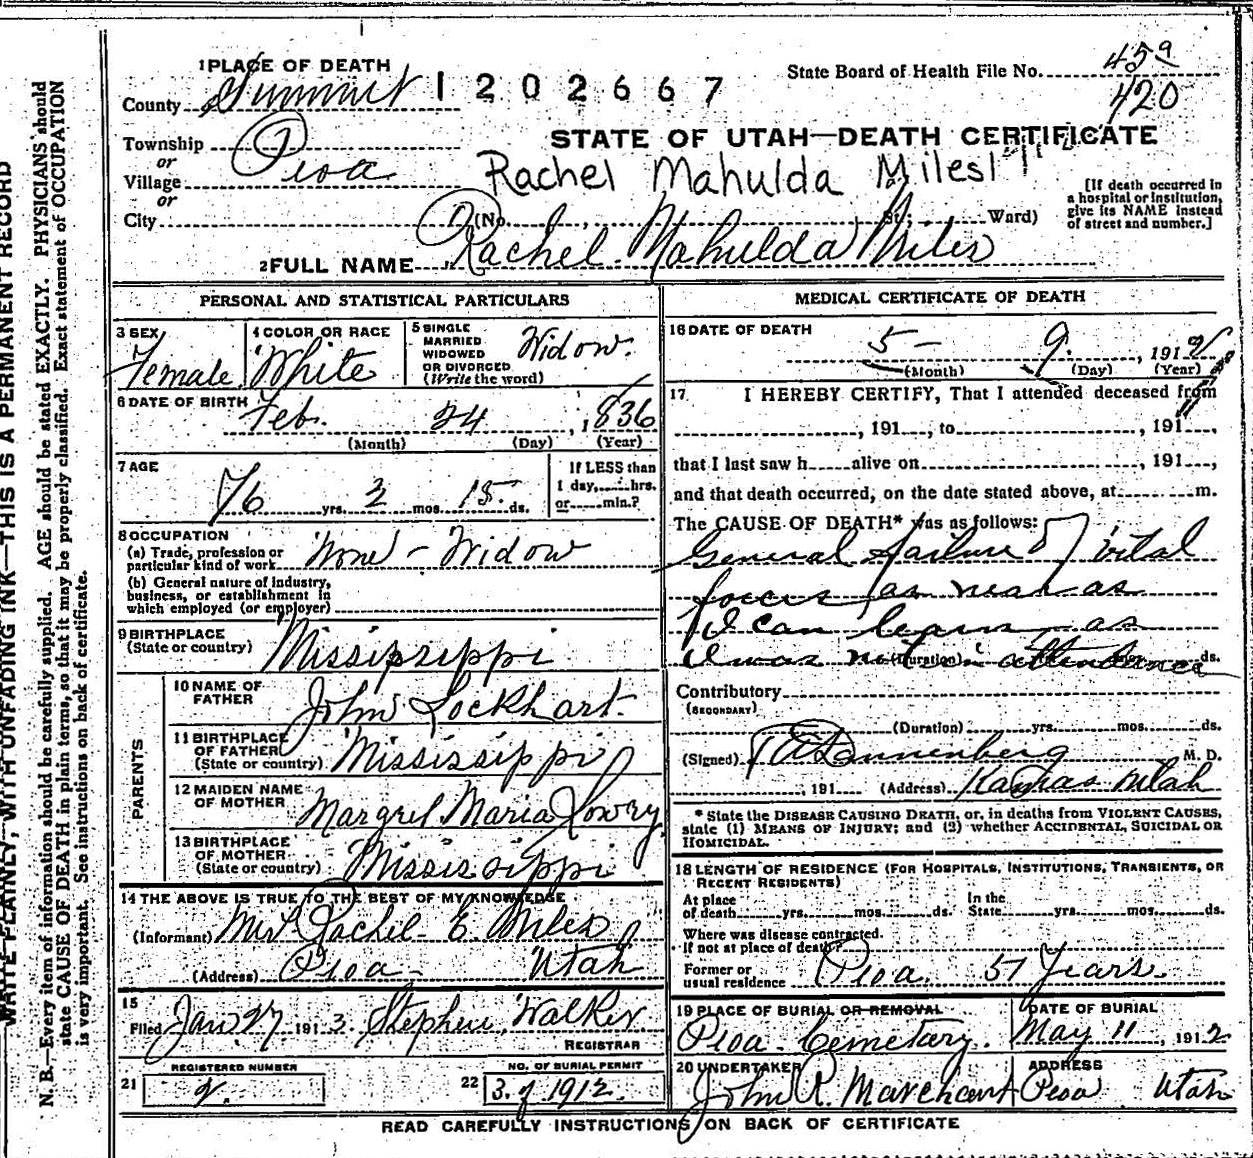 WRITE PLAINLY, WITH UNFADING INK—THIS IS A PERMANENT RECORD
N. B.—Every item of information should be carefully supplied. AGE should be stated EXACTLY. PHYSICIANS should
state CAUSE OF DEATH in plain terms, so that it may be properly classified. Exact statement of OCCUPATION
is very important. See instructions on back of certificate.
1 PLACE OF DEATH
County Summit 1202667
State Board of Health File No. 459
420
STATE OF UTAH—DEATH CERTIFICATE
Township
or
Village Peoa
or
City
Rachel Mahulda Miles
(No. St.; Ward)
[If death occurred in
a hospital or institution,
give its NAME instead
of street and number.]
2 FULL NAME Rachel Mahulda Miles
PERSONAL AND STATISTICAL PARTICULARS
3 SEX
Female
4 COLOR OR RACE
White
5 SINGLE
MARRIED
WIDOWED
OR DIVORCED
(Write the word)
Widow.
6 DATE OF BIRTH Feb. 24, 1836
(Month) (Day) (Year)
7 AGE
76 yrs. 2 mos. 15 ds.
If LESS than
1 day, hrs.
or min.?
8 OCCUPATION
(a) Trade, profession or
particular kind of work None - Widow
(b) General nature of industry,
business, or establishment in
which employed (or employer)
9 BIRTHPLACE
(State or country) Missipsippi
PARENTS
10 NAME OF
FATHER John Lockhart.
11 BIRTHPLACE
OF FATHER
(State or country) Mississippi
12 MAIDEN NAME
OF MOTHER Margret Maria Lowry
13 BIRTHPLACE
OF MOTHER
(State or country) Mississippi
14 THE ABOVE IS TRUE TO THE BEST OF MY KNOWLEDGE
(Informant) Mrs Rachel E. Miles
(Address) Peoa - Utah
15
Filed Jan 27 1913. Stephen Walker
REGISTRAR
21 REGISTERED NUMBER
2.
22 NO. OF BURIAL PERMIT
3 of 1912.
MEDICAL CERTIFICATE OF DEATH
16 DATE OF DEATH
5 - 9. , 1912
(Month) (Day) (Year)
17 I HEREBY CERTIFY, That I attended deceased from
, 191 , to , 191 ,
that I last saw h alive on , 191 ,
and that death occurred, on the date stated above, at m.
The CAUSE OF DEATH* was as follows:
General failure of vital
forces as near as
I can learn as
I was not in attendance
(Duration) ds.
Contributory
(SECONDARY)
(Duration) yrs. mos. ds.
(Signed) Dannenberg M. D.
, 191 (Address) Kamas Utah
* State the DISEASE CAUSING DEATH, or, in deaths from VIOLENT CAUSES,
state (1) MEANS OF INJURY; and (2) whether ACCIDENTAL, SUICIDAL OR
HOMICIDAL.
18 LENGTH OF RESIDENCE (FOR HOSPITALS, INSTITUTIONS, TRANSIENTS, OR
RECENT RESIDENTS)
At place
of death yrs. mos. ds.
In the
State yrs. mos. ds.
Where was disease contracted.
If not at place of death?
Former or
usual residence Peoa. 51 Years.
19 PLACE OF BURIAL OR REMOVAL
Peoa Cemetary.
DATE OF BURIAL
May 11, 1912
20 UNDERTAKER
John R. Marchant
ADDRESS
Peoa Utah
READ CAREFULLY INSTRUCTIONS ON BACK OF CERTIFICATE